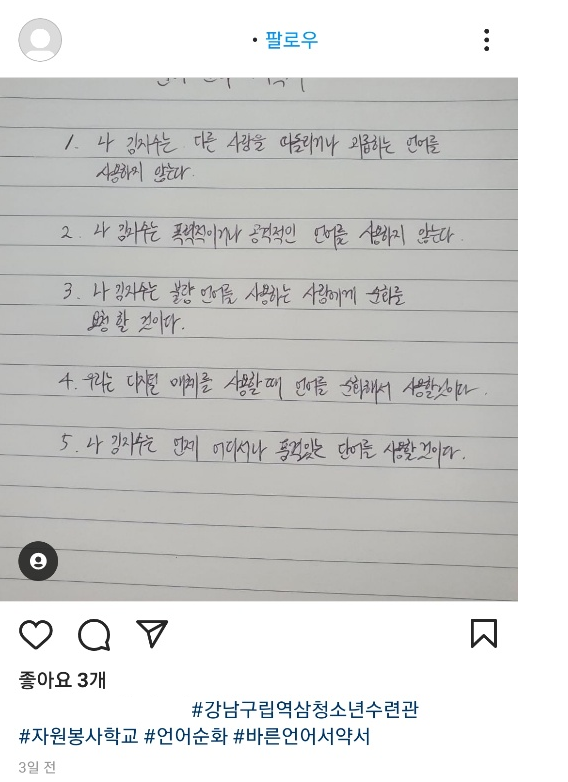 • 팔로우
1. 나 김지수는 다른 사람을 따돌리거나 괴롭하는 언어를
사용하지 않는다.
2. 나 김지수는 폭력적이거나 공격적인 언어를 사용하지 않는다.
3. 나 김지수는 불량 언어를 사용하는 사람에게 순화를
요청 할 것이다.
4. 우리는 디지털 매체를 사용할 때 언어를 순화해서 사용할것이다.
5. 나 김지수는 언제 어디서나 품격있는 단어를 사용할 것이다.
좋아요 3개
#강남구립역삼청소년수련관
#자원봉사학교 #언어순화 #바른언어서약서
3일 전